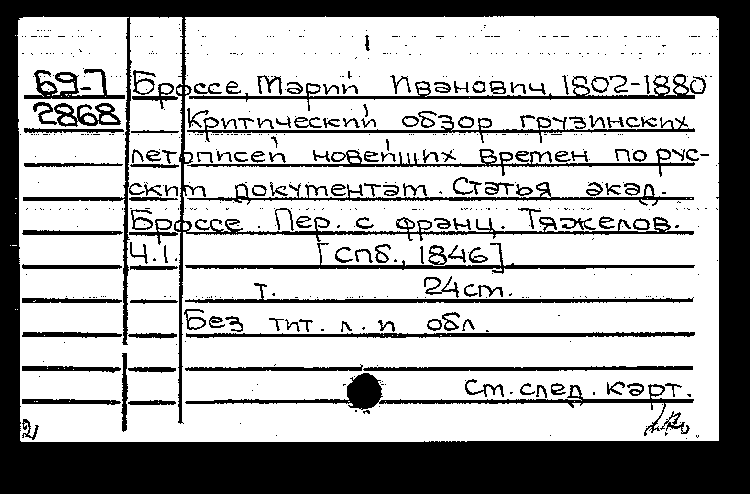 1
69-7 Броссе, Марий Иванович, 1802-1880
2868 Критический обзор грузинских
летописей новейших времен по рус-
ским документам. Статья акад.
Броссе. Пер. с франц. Тяжелов.
Ч.I. [Спб., 1846].
т. 24 см.
Без тит. л. и обл.
См. след. карт.
21